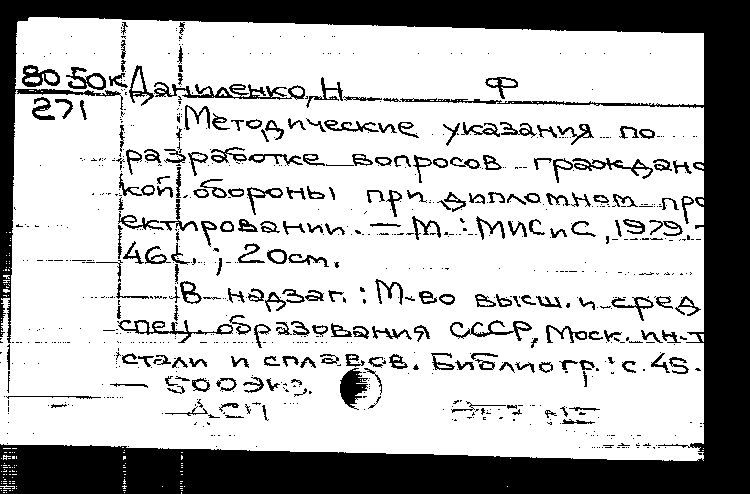 80-50к Даниленко, Н Ф
271
Методические указания по
разработке вопросов гражданс
кой обороны при дипломном про
ектировании. — М. : МИСиС, 1979. -
46с. ; 20см.
В надзаг. : М-во высш. и сред
спец. образования СССР, Моск. ин-т
стали и сплавов. Библиогр. : с. 45.
— 500 экз.
ДСП